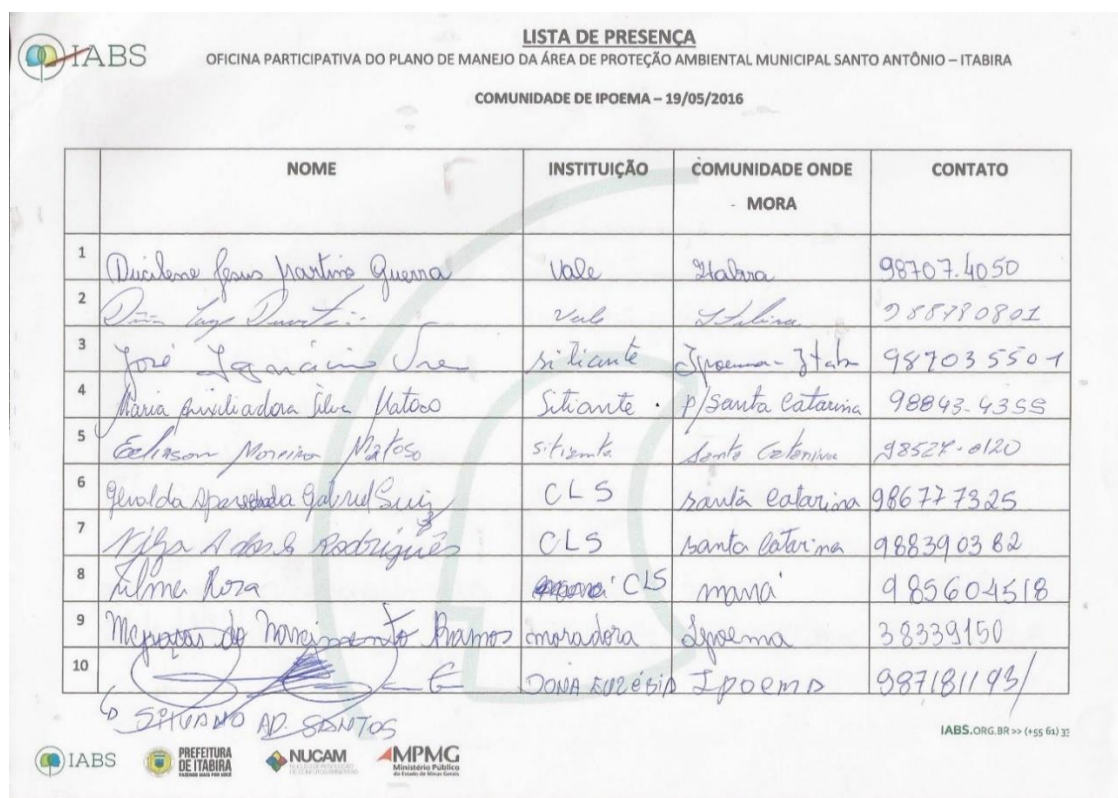 IABS
LISTA DE PRESENÇA
OFICINA PARTICIPATIVA DO PLANO DE MANEJO DA ÁREA DE PROTEÇÃO AMBIENTAL MUNICIPAL SANTO ANTÔNIO – ITABIRA
COMUNIDADE DE IPOEMA – 19/05/2016
NOME INSTITUIÇÃO COMUNIDADE ONDE MORA CONTATO
1 Jesus Martins Guerra Vale Itabira 98707.4050
2 Vale 988780801
3 José sitiante Ipoema - 987035501
4 Maria Auxiliadora Silva Matoso Sitiante p/Santa Catarina 98843-4355
5 Moreira Matoso sitiante Santa Catarina 98527-0120
6 Geralda Aparecida Gabriel CLS santa Catarina 986777325
7 Rodrigues CLS santa Catarina 988390382
8 Rosa CLS 985604518
9 do Ramos moradora Ipoema 38339150
10 DONA EUZÉBIA IPOEMA 987181193
SANTOS
IABS.ORG.BR >> (+55 61)
IABS
PREFEITURA
DE ITABIRA
FAZENDO MAIS POR VOCÊ
NUCAM
MPMG
Ministério Público
do Estado de Minas Gerais